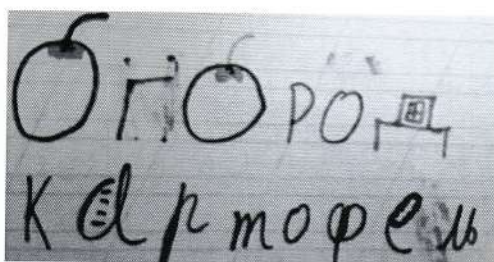 Огород
Картофель